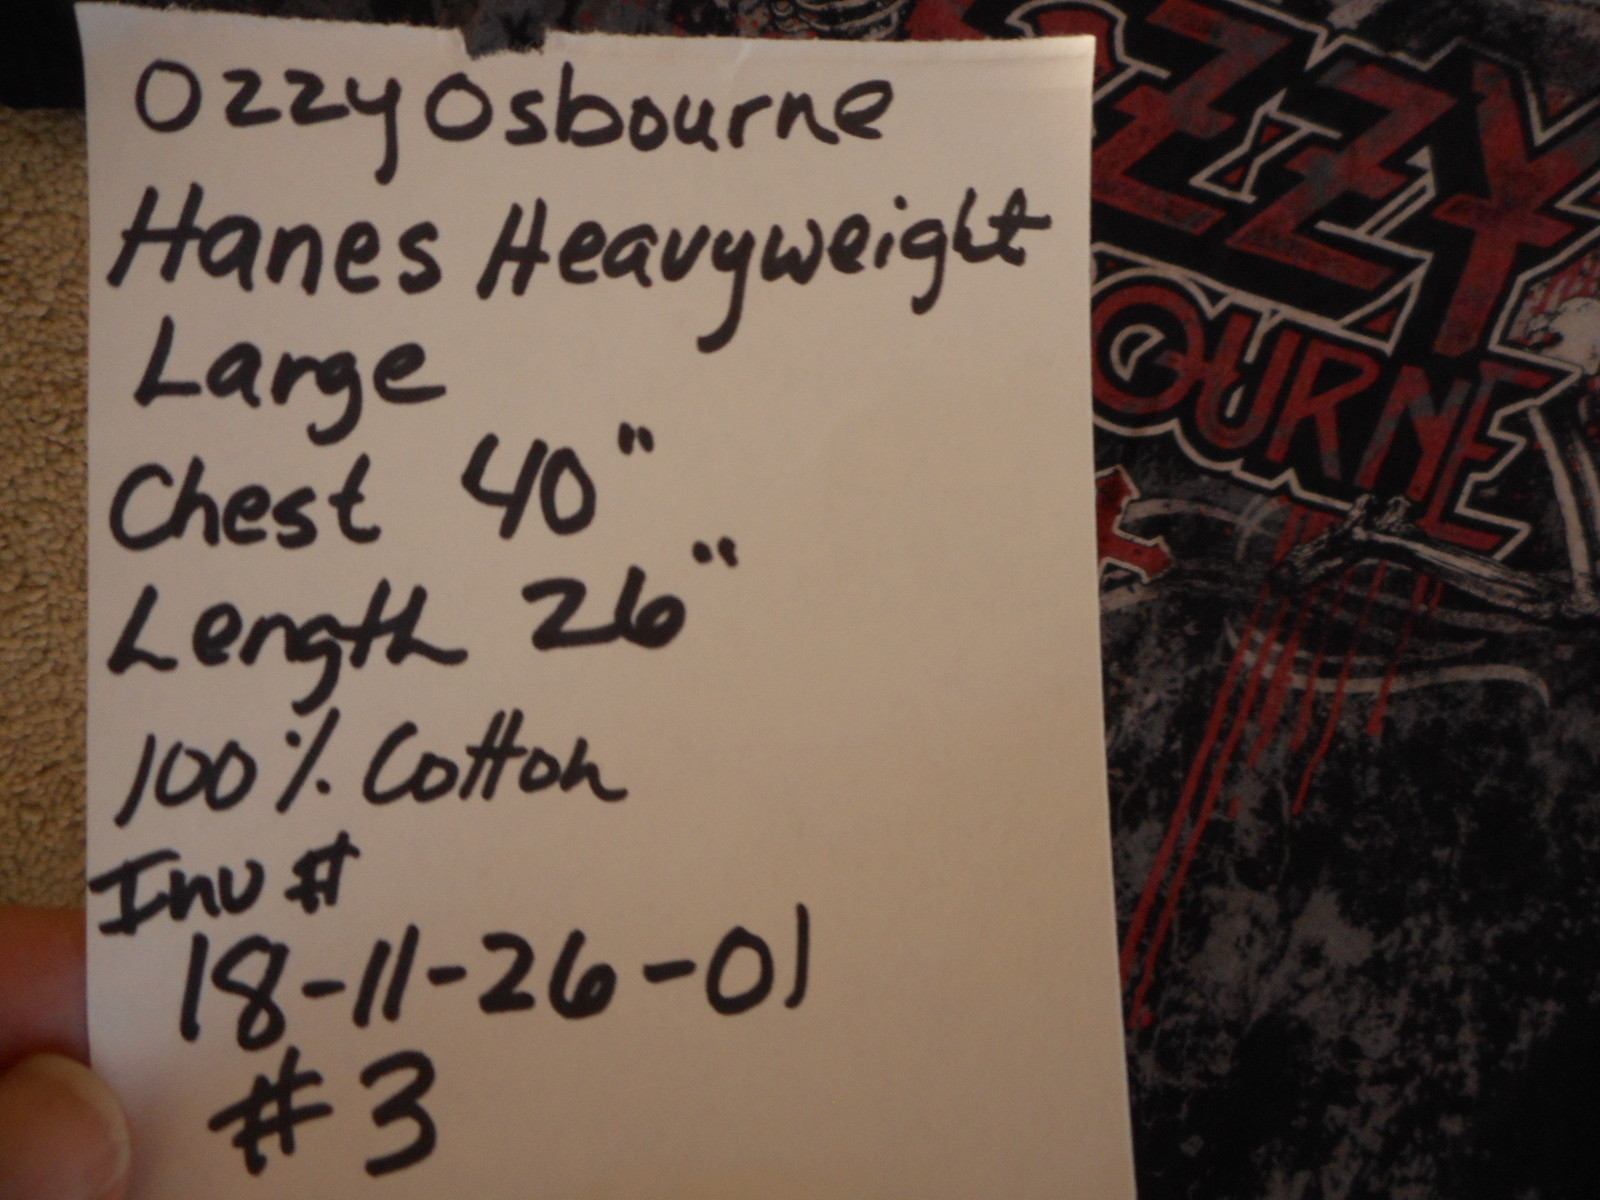 Ozzy Osbourne
Hanes Heavyweight
Large
Chest 40"
Length 26"
100% Cotton
Inv #
18-11-26-01
#3
ZZY
OURNE